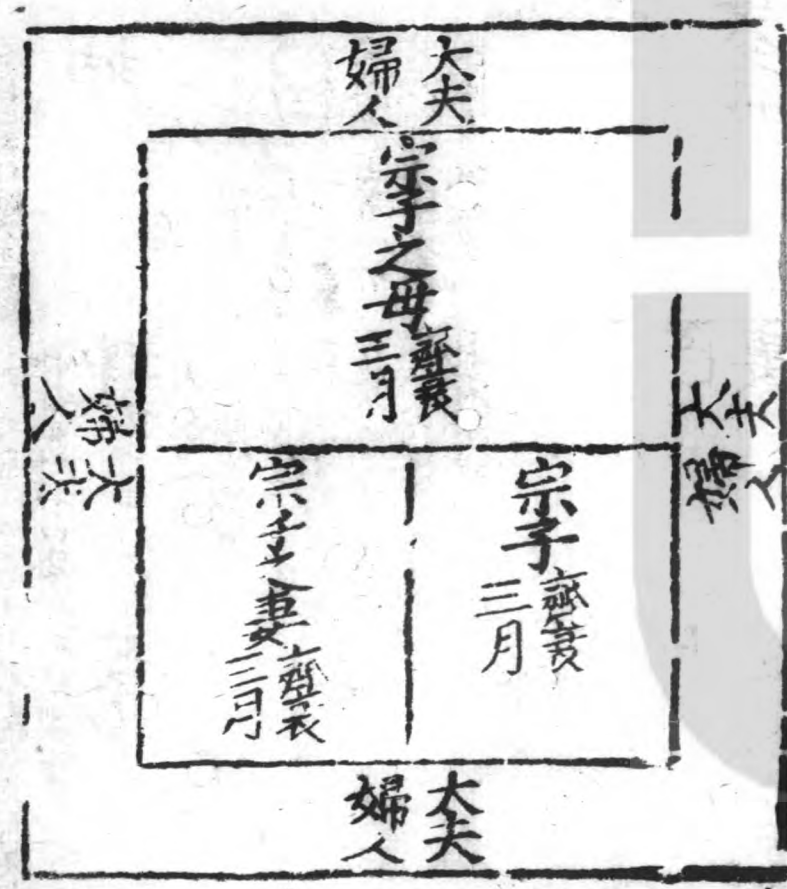 大夫
婦人
宗子之母齊衰
三月
大夫
婦人
宗子齊衰
三月
宗子之妻齊衰
三月
大夫
婦人
大夫
婦人